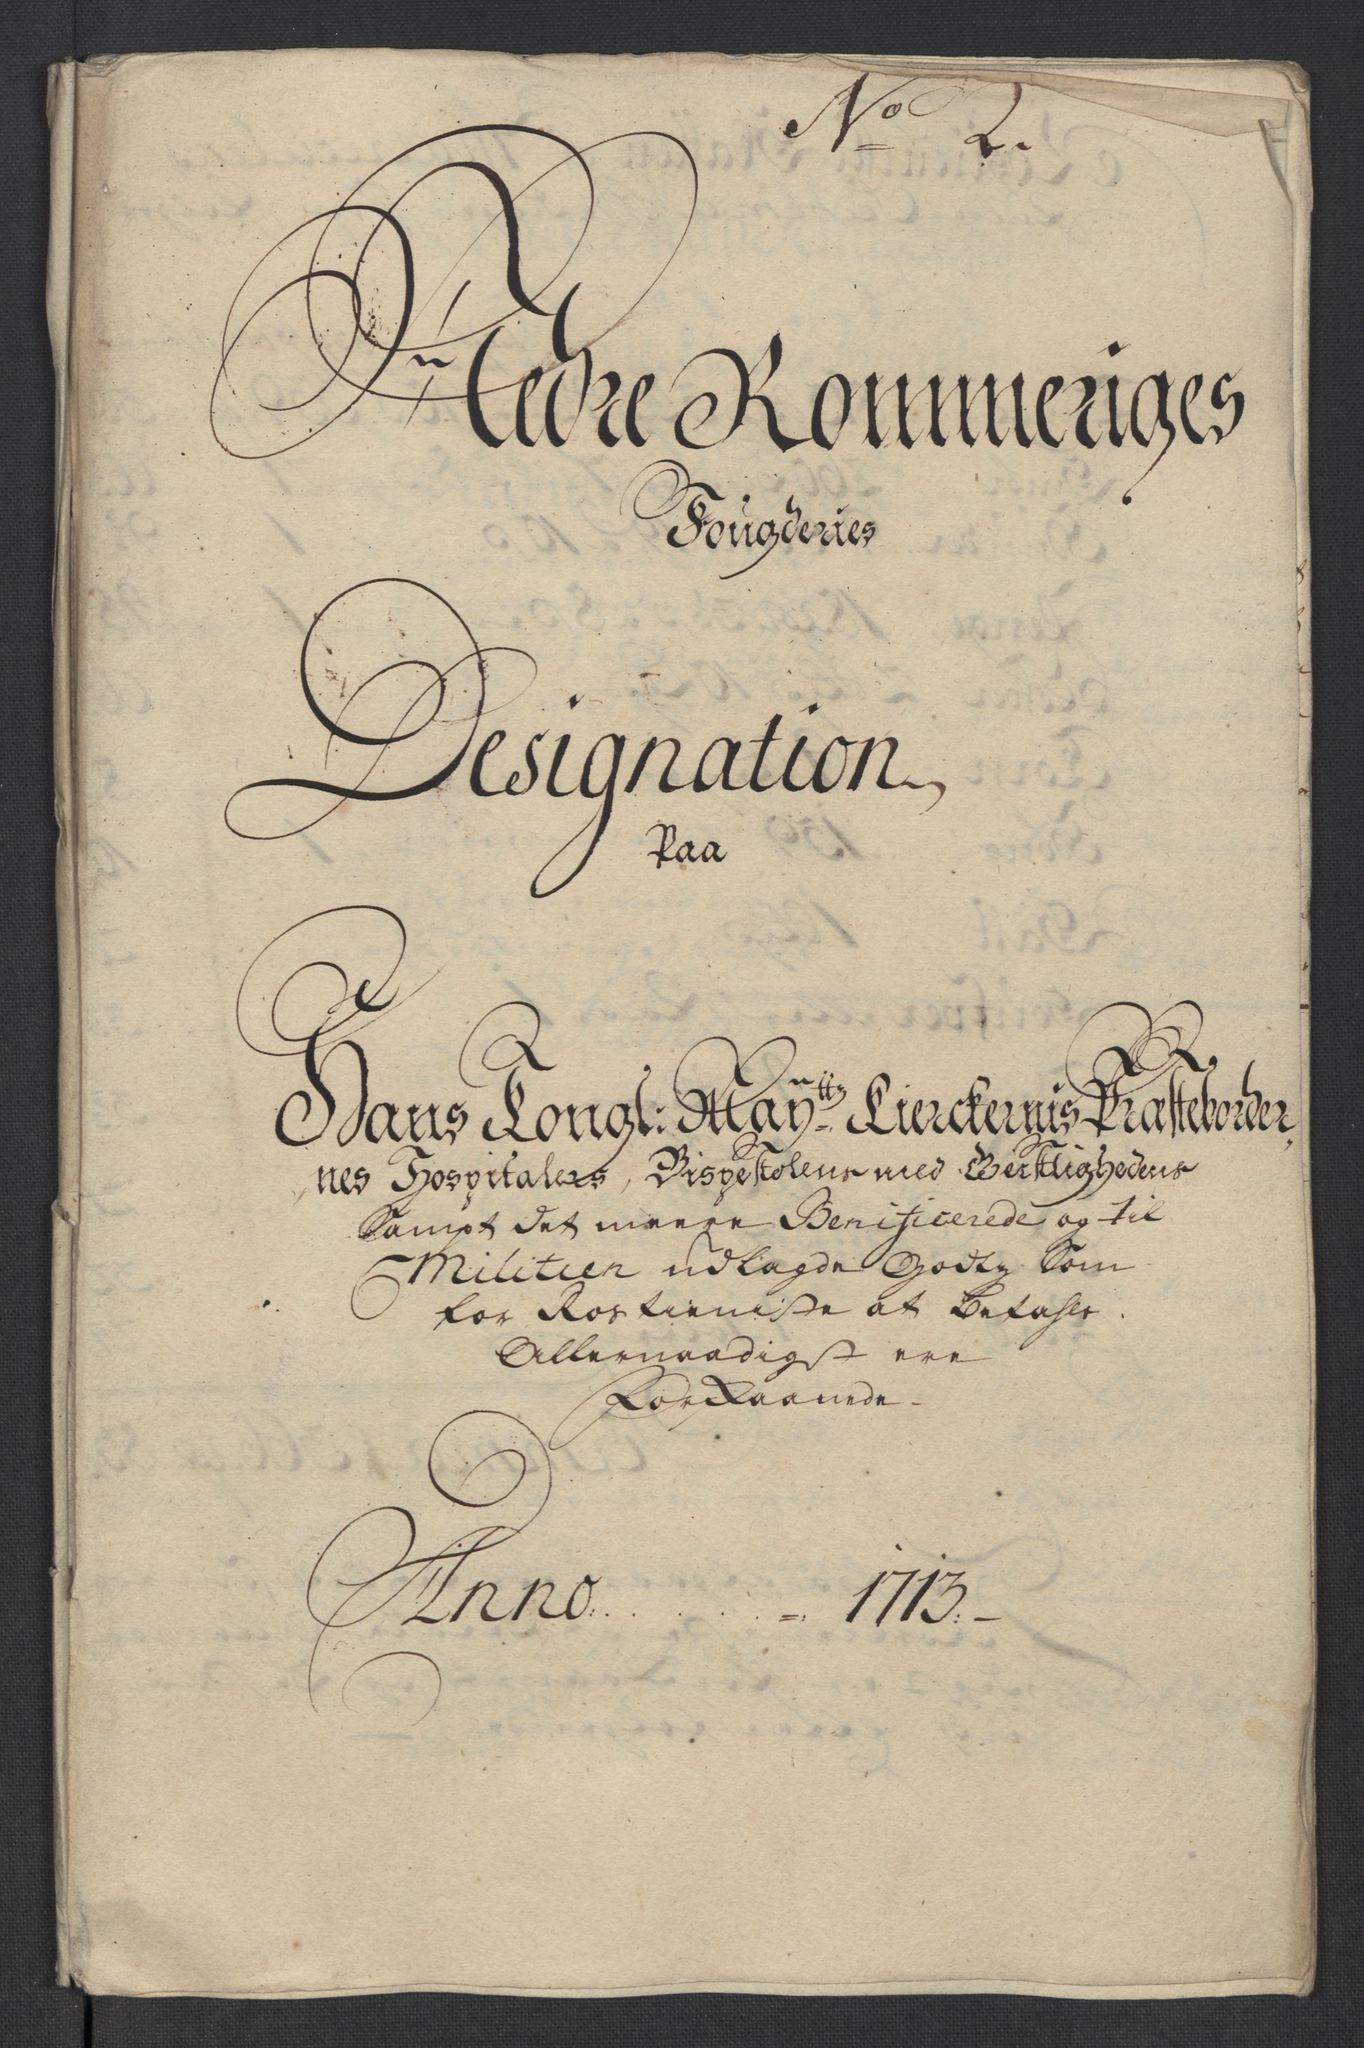 No 2.
Nedre Rommeriges
Fougderies
Designation
Paa
Hans Kongl: Mayttz Kierckernis Præsteborder-
nes Hospitalers, Bispestolens med Geistlighedens
Sampt det meere Benificerede og til
Militien udlagde Godtz som
for Rostieniste at betahle
Allernaadigst ere
Forskaanede-
Anno . . . . = 1713.-